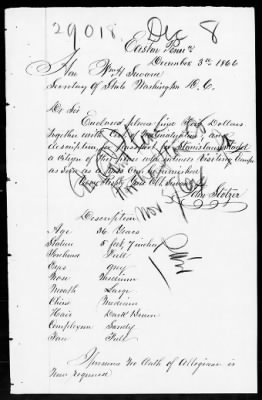 29018. Dec 8
Easton Penn'a
December 3rd 1866
Hon Wm H Seward
Secretary of State Washington D.C.
Dr Sir
Enclosed please find Five Dollars
together with Naturalization and
description for Passport for Stanislaus
a citizen of this place who intends Visiting Europe
as soon as Papers can be furnished
Very Truly Your Obt Servant
John Stotzer
Description
Age 36 Years
Stature 5 feet 7 inches
Forehead Full
Eyes grey
Nose Medium
Mouth Large
Chin Medium
Hair Dark Brown
Complexion Sandy
Face Full
I presume no Oath of Allegiance is
Now required